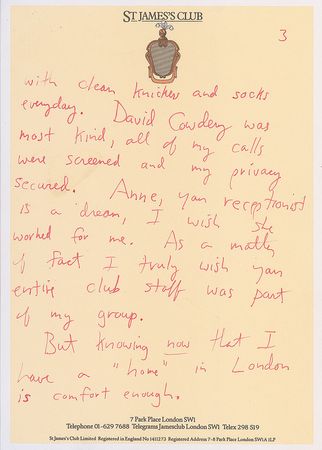 ST JAMES'S CLUB
3
with clean knickers and socks
everyday. David Cowdery was
most kind, all of my calls
were screened and my privacy
secured. Anne, your receptionist
is a dream, I wish she
worked for me. As a matter
of fact I truly wish your
entire club staff was part
of my group.
But knowing now that I
have a "home" in London
is comfort enough.
7 Park Place London SW1
Telephone 01-629 7688 Telegrams Jamesclub London SW1 Telex 298 519
St James's Club Limited Registered in England No 1411273 Registered Address 7-8 Park Place London SW1A 1LP